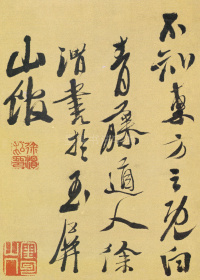 不知東方之既白
青藤道人徐
渭書於玉屏
山館